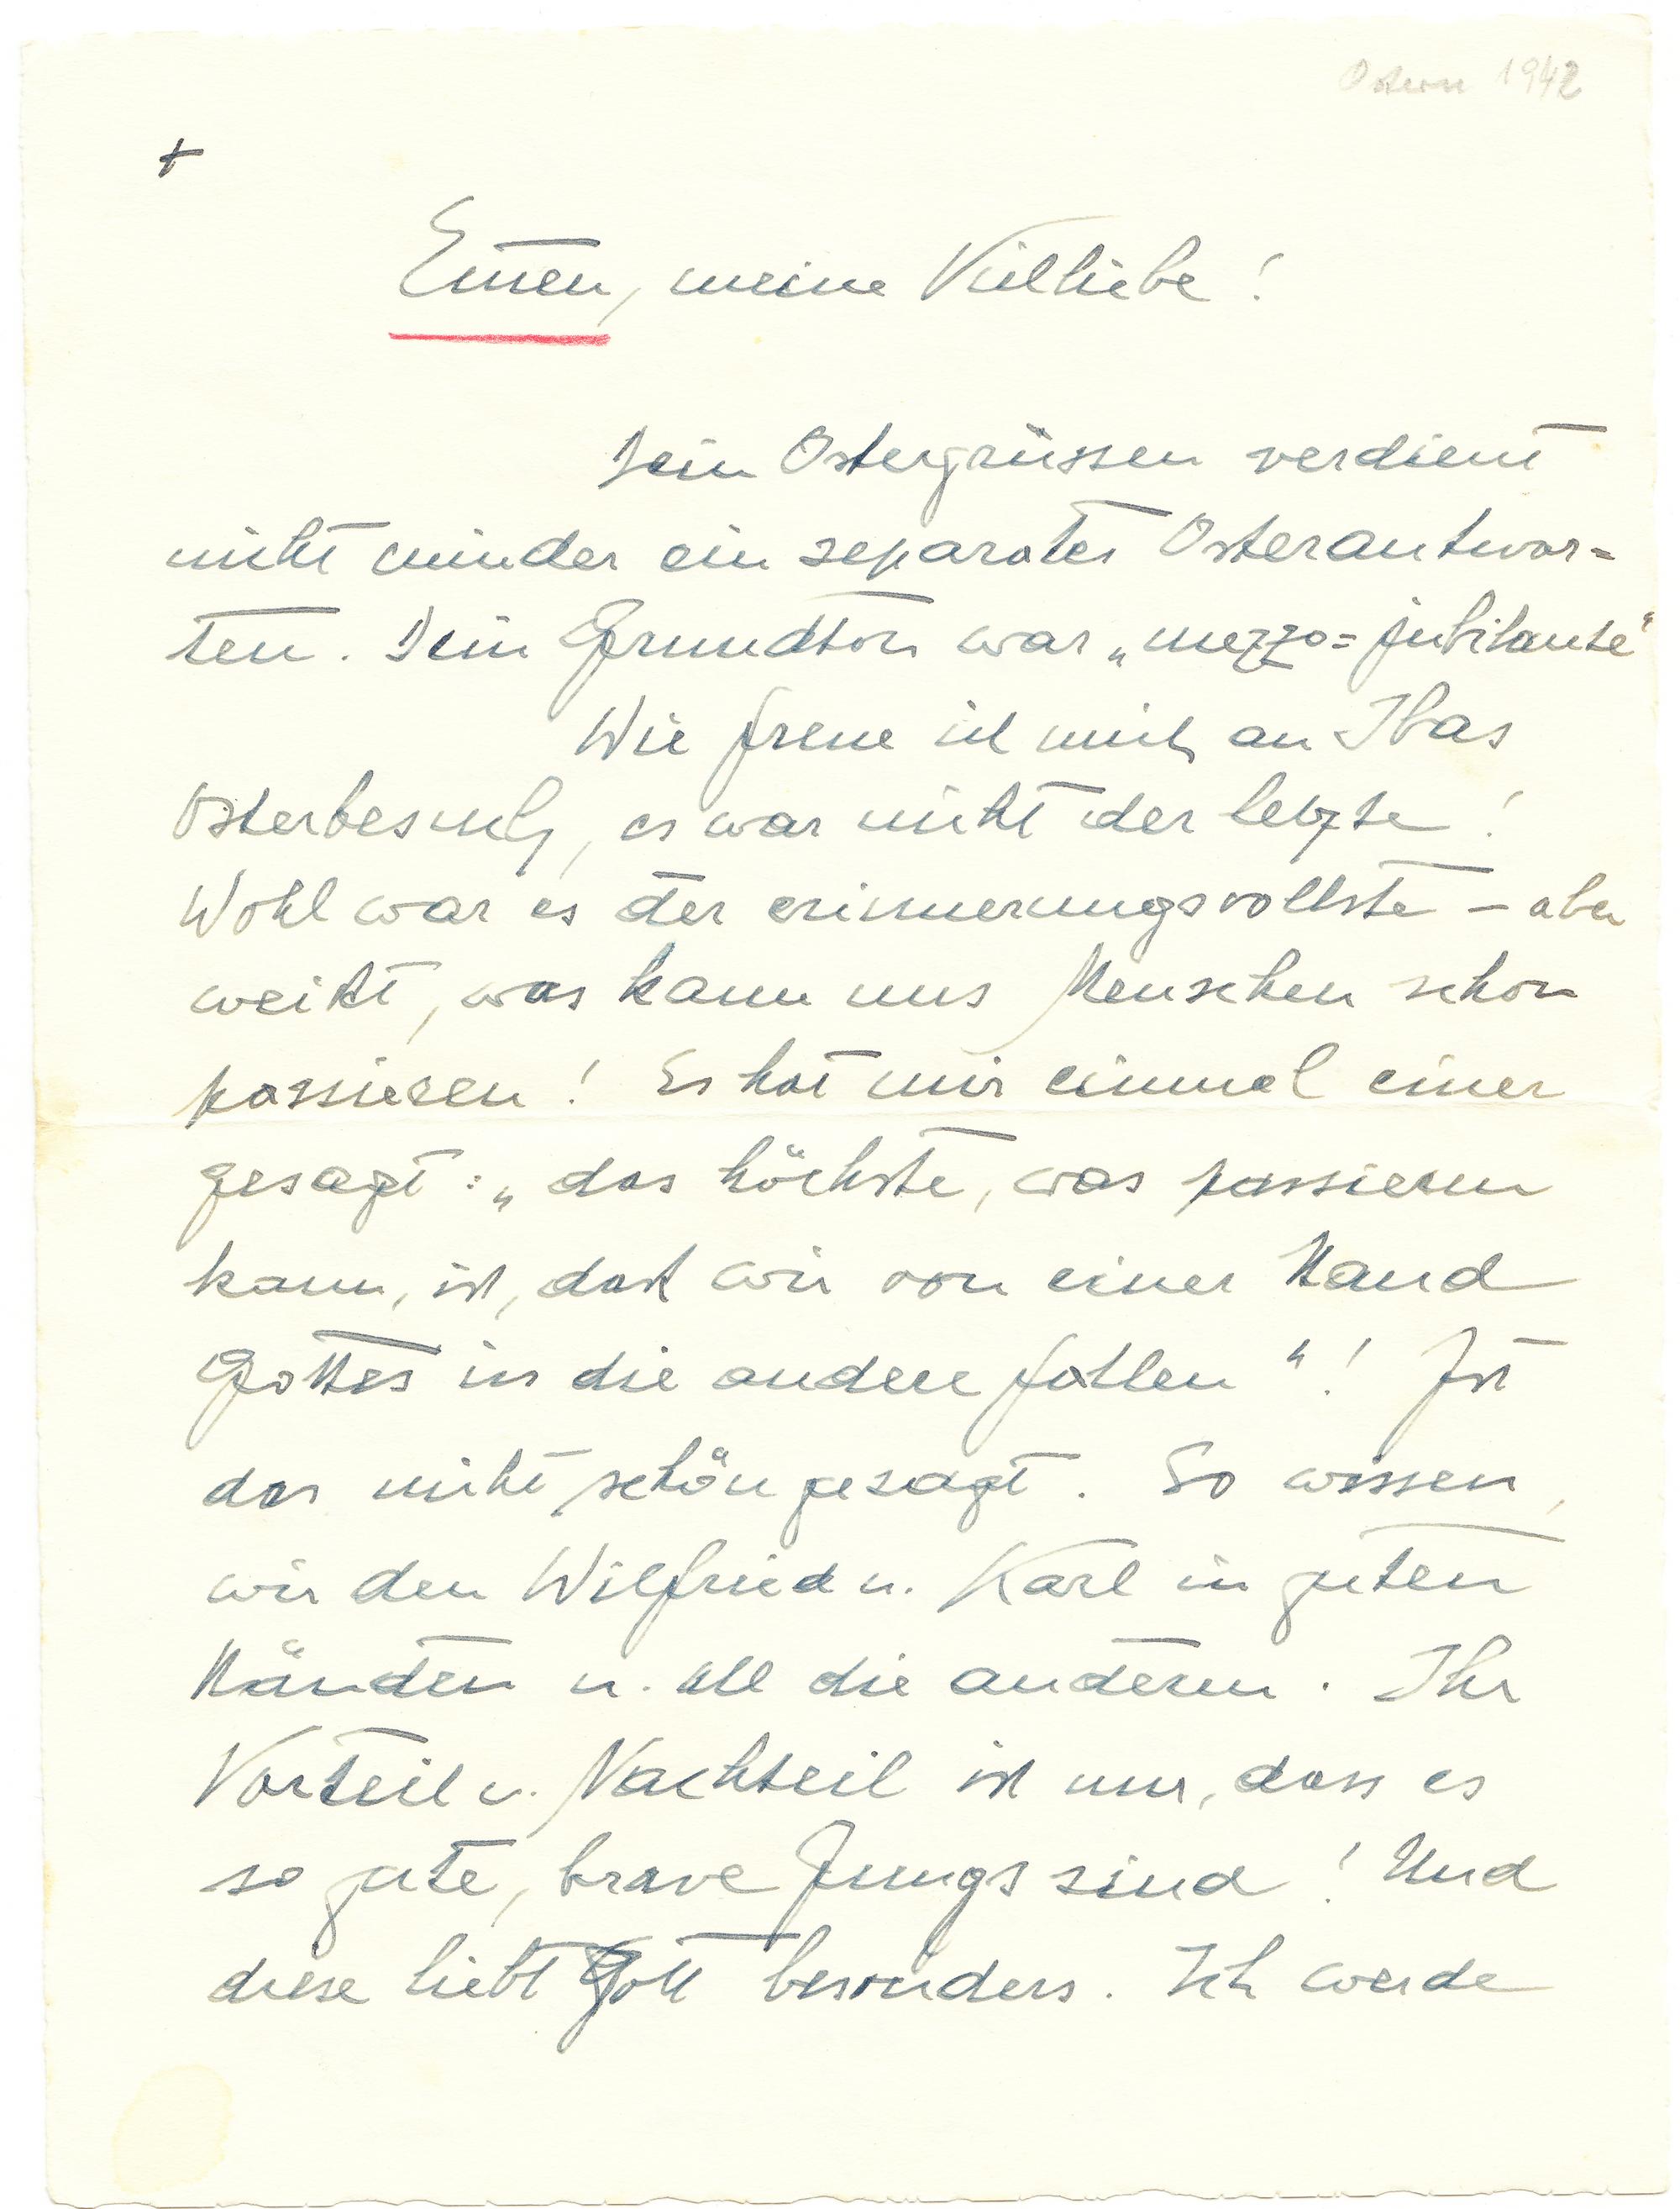 Ostern 1942
+
Emen, meine Vielliebe!
Dein Ostergrüssen verdient
nicht minder ein separates Osterantwor=
ten. Dein Grundton war „mezzo=jubilante“
Wie freue ich mich an Ibas
Osterbesuch, es war nicht der letzte!
Wohl war es der erinnerungsvollste – aber
weißt, was kann uns Menschen schon
passieren! Es hat mir einmal einer
gesagt: „das höchste, was passieren
kann, ist, daß wir von einer Hand
Gottes in die andere fallen“! Ist
das nicht schön gesagt. So wissen
wir den Wilfried u. Karl in guten
Händen u. all die anderen. Ihr
Vorteil u. Nachteil ist nur, dass es
so gute, brave Jungs sind! Und
diese liebt Gott besonders. Ich werde